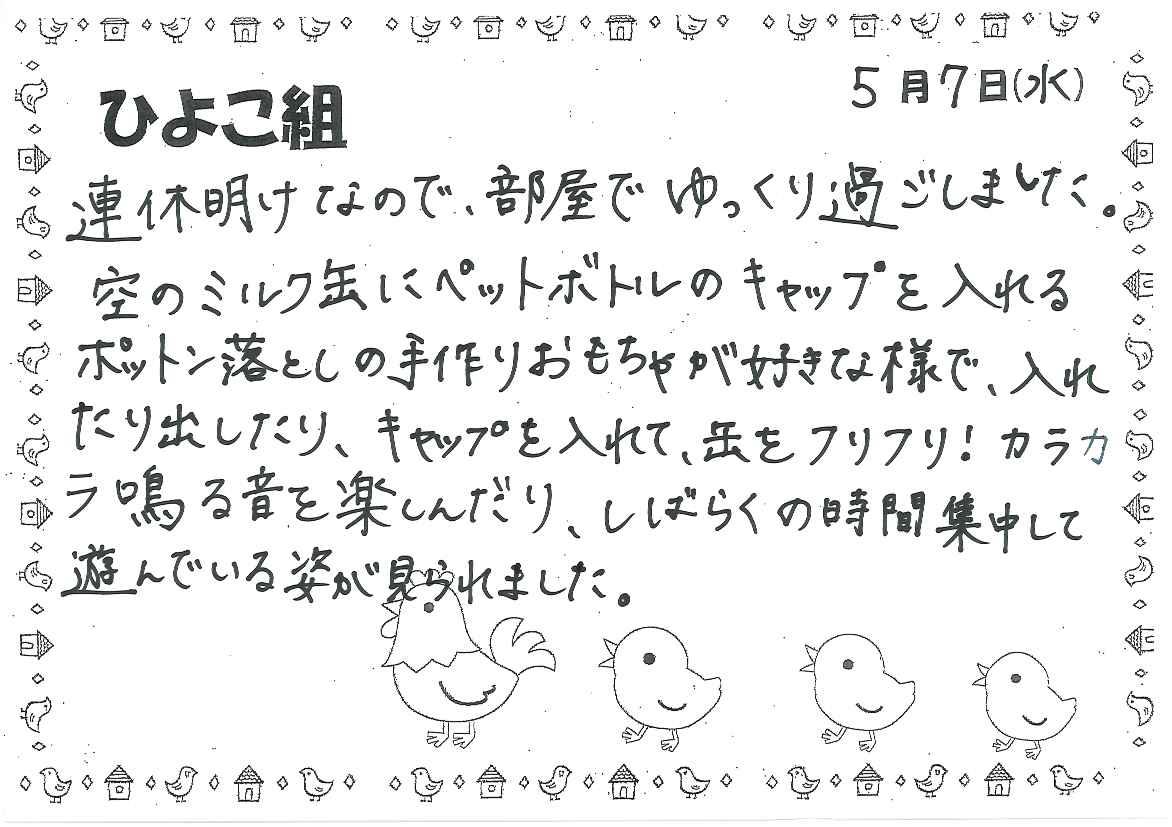 ひよこ組
5月7日(水)
連休明けなので、部屋でゆっくり過ごしました。
空のミルク缶にペットボトルのキャップを入れる
ポットン落としの手作りおもちゃが好きな様で、入れ
たり出したり、キャップを入れて、缶をフリフリ!カラカ
ラ鳴る音を楽しんだり、しばらくの時間集中して
遊んでいる姿が見られました。